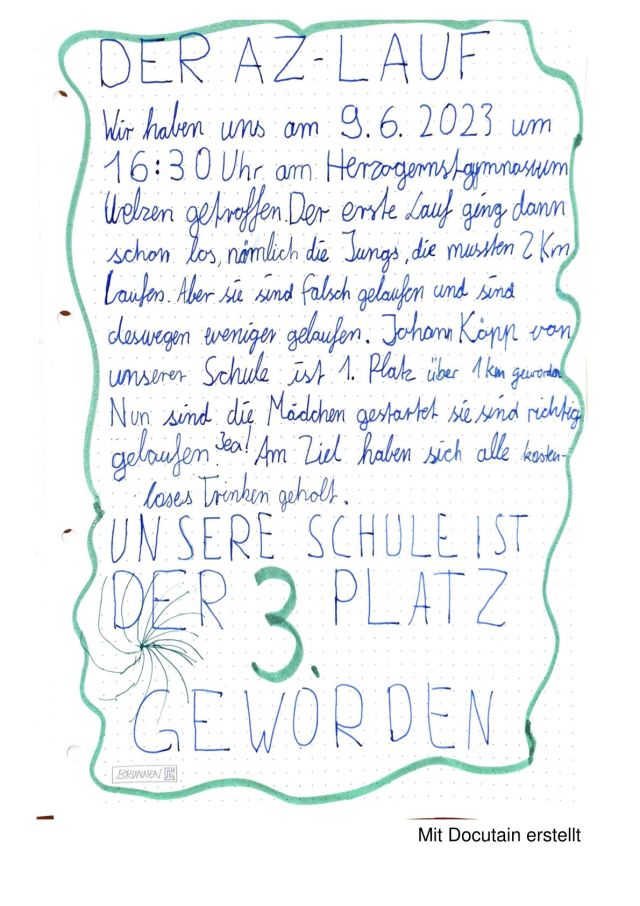 DER AZ-LAUF
Wir haben uns am 9.6.2023 um
16:30 Uhr am Herzogernstgymnasium
Uelzen getroffen. Der erste Lauf ging dann
schon los, nämlich die Jungs, die mussten 2 Km
Laufen. Aber sie sind falsch gelaufen und sind
deswegen weniger gelaufen. Johann Käpp von
unserer Schule ist 1. Platz über 1 km geworden
Nun sind die Mädchen gestartet sie sind richtig
gelaufen. Jea! Am Ziel haben sich alle kosten-
loses Trinken geholt.
UNSERE SCHULE IST
DER 3. PLATZ
GEWORDEN
BRUNNEN
Mit Docutain erstellt